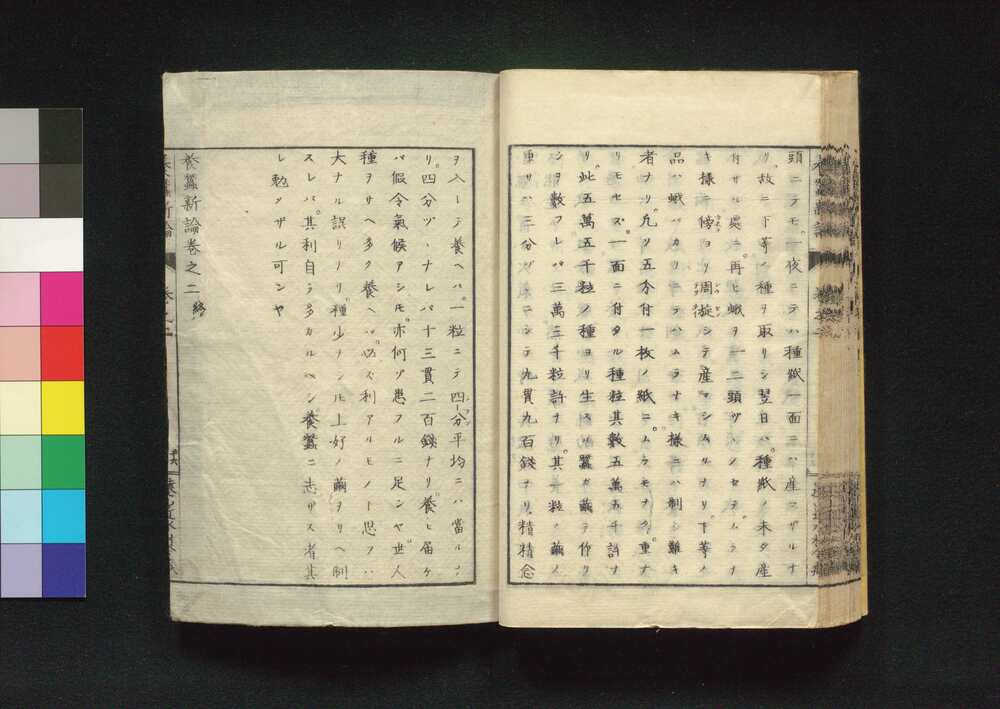 頭ニテモ一夜ニテハ種紙一面ニハ産マザルナ
リ故ニ下等ノ種ヲ取リシ翌日ハ種紙ノ未タ産
付サル處ニ再ヒ蛾ヲ一二頭ヅヽノセテムラナ
キ様傍ヨリ周旋シテ産マシムルナリ下等ノ
品ハ蛾バカリニテハムラナキ様ニハ制シ難キ
者ナリ凡ソ五分付一枚ノ紙ニムラモナク重ナ
リモセズ一面ニ付タル種粒其數五萬五千許ナ
リ此五萬五千粒ノ種ヨリ生スル蠶ガ繭ヲ作リ
シヲ數フレバ三萬三千粒許ナリ其一粒ノ繭ノ
重サハ三分ヅヽニシテ九貫九百錢ナリ精精念
ヲ入レテ養ヘバ一粒ニテ四分平均ニハ當ルナ
リ四分ヅヽナレバ十三貫二百錢ナリ養ヒ届ケ
バ假令氣候アシモ亦何ゾ患フルニ足ンヤ世人
種ヲサヘ多ク養ヘバ必ズ利アルモノト思フハ
大ナル誤リナリ種少ナシ𪜈上好ノ繭ヲサヘ制
スレバ其利自ラ多カルベシ養蠶ニ志ザス者其
レ勉メザル可ンヤ
養蠶新論卷之二終